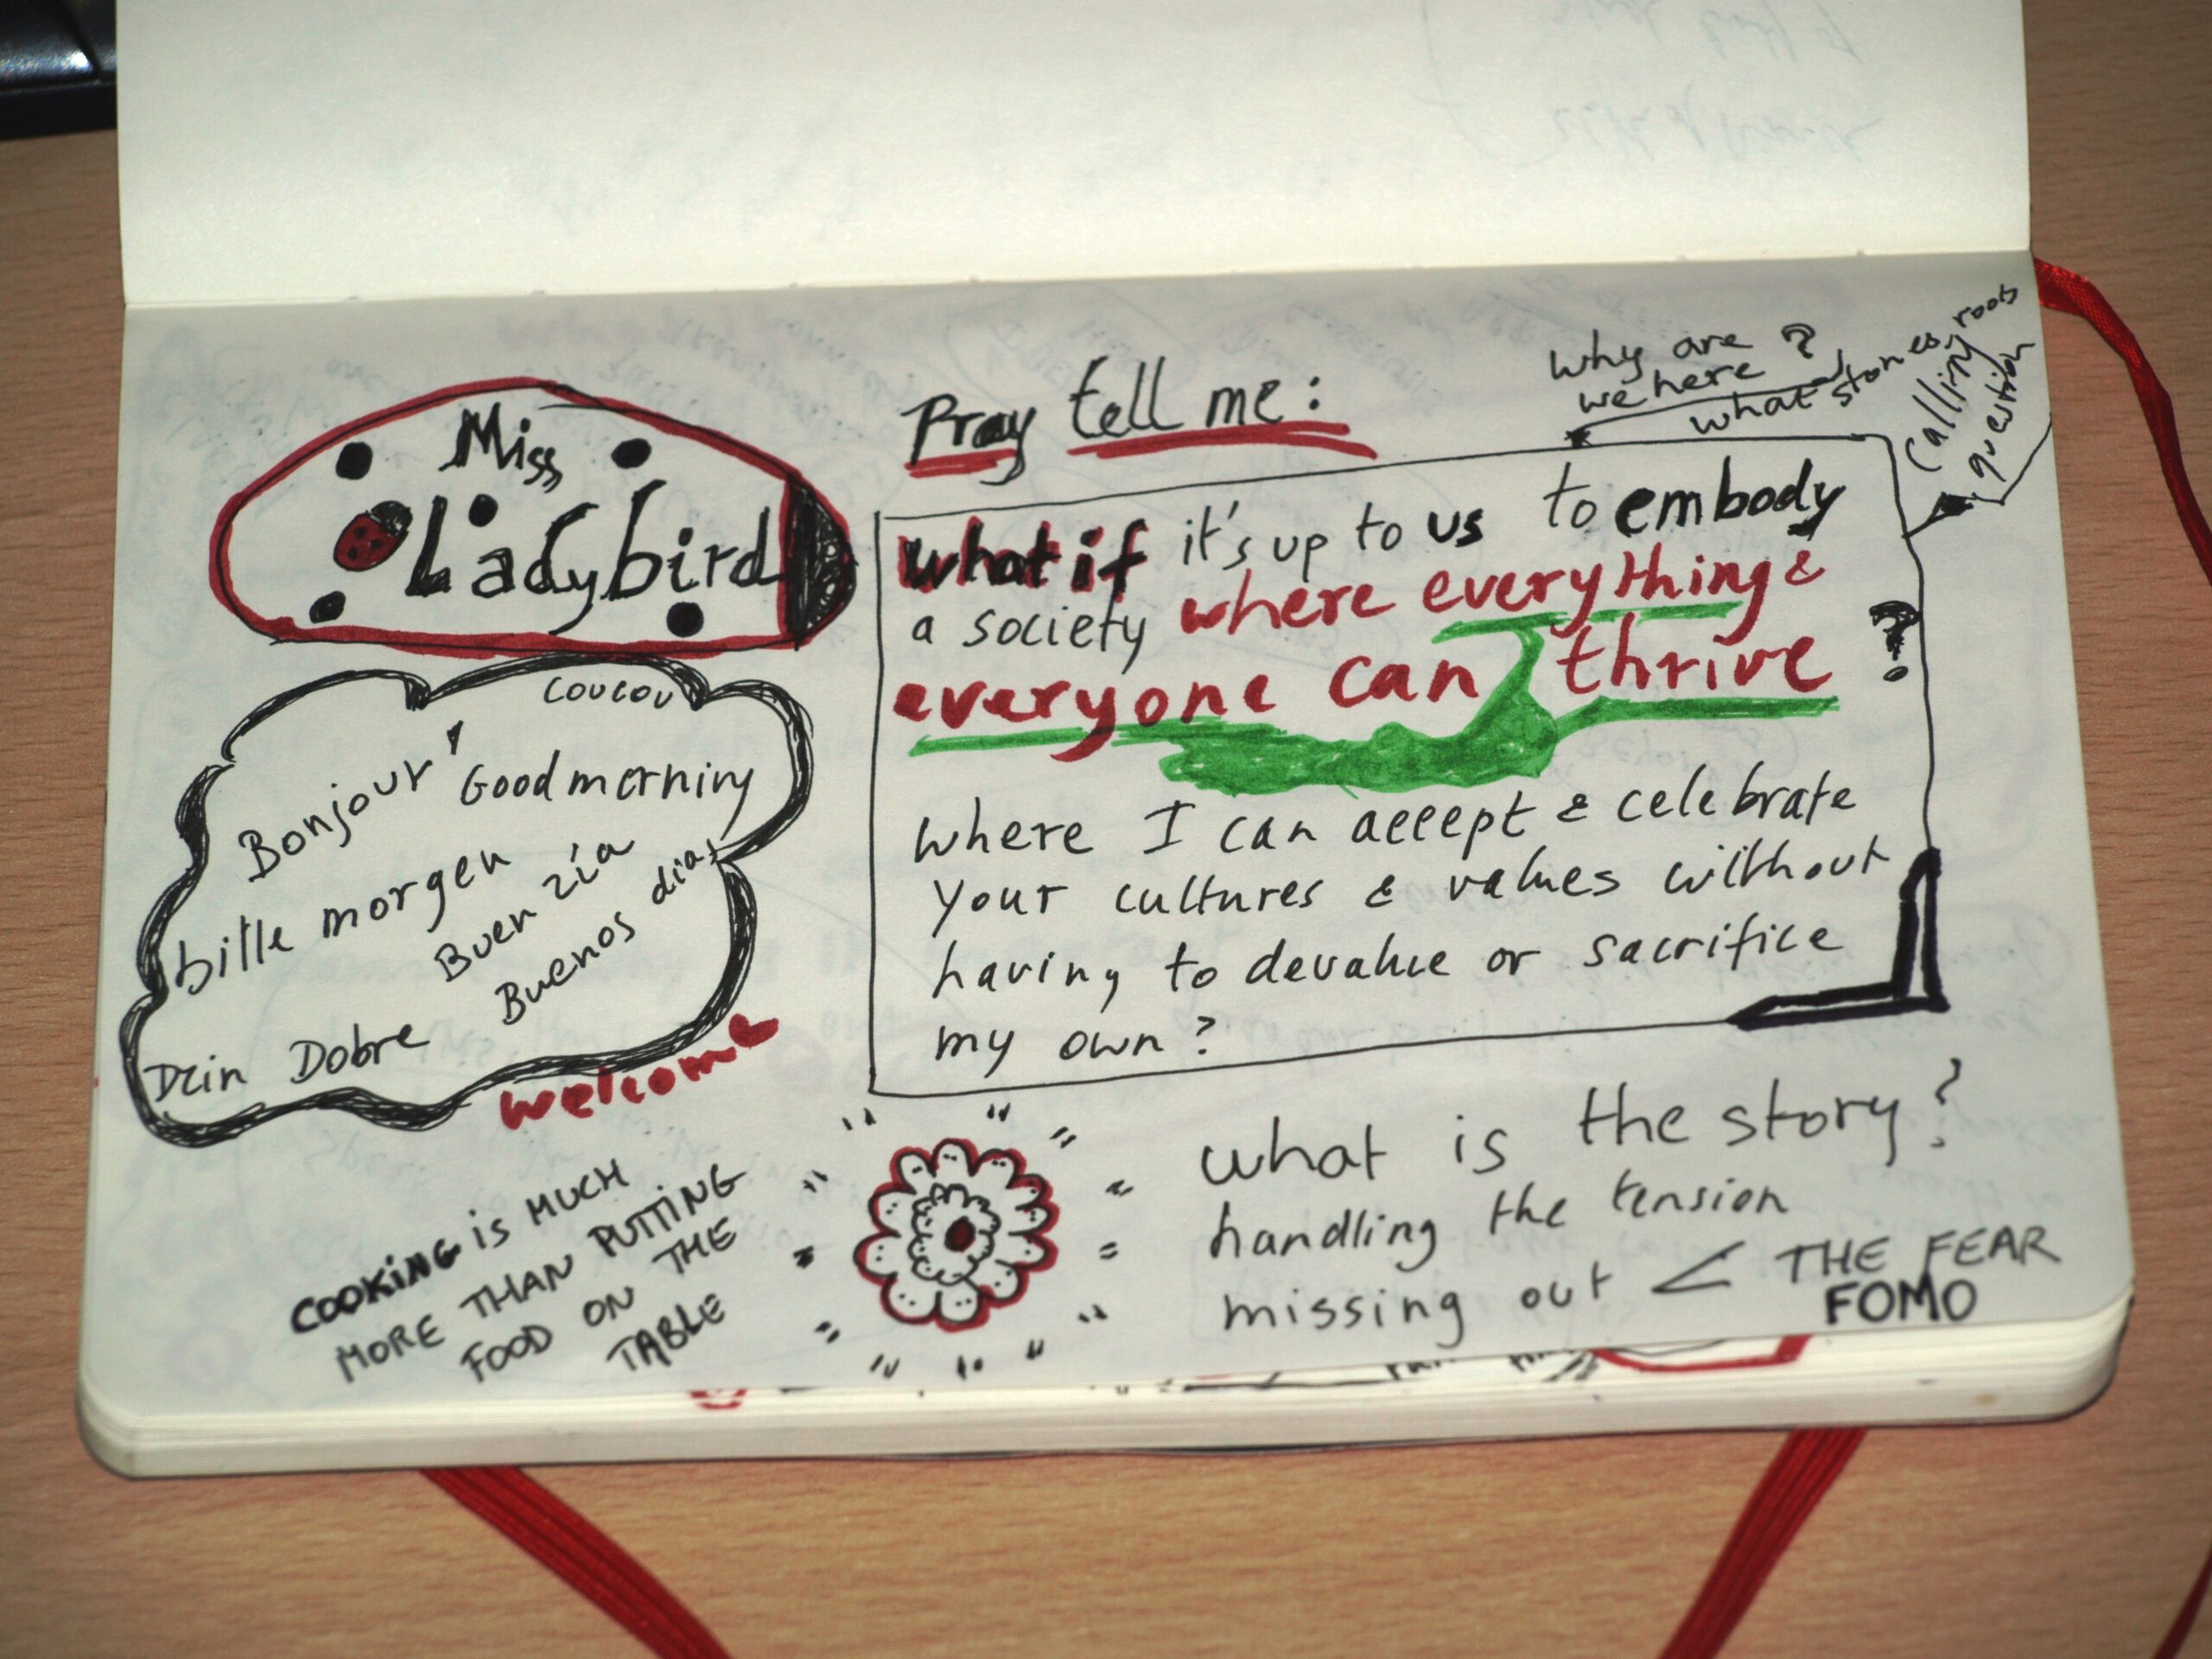 Miss
Ladybird
coucou
Bonjour
Good morning
bitte morgen
Buen zía
Buenos dias
Dzin Dobre
welcome
COOKING is MUCH
MORE THAN PUTTING
FOOD ON THE
TABLE
Pray tell me:
Why are
we here?
what stories, roots
calling
question
what if it's up to us to embody
a society where everything &
everyone can thrive
?
where I can accept & celebrate
your cultures & values without
having to devalue or sacrifice
my own?
what is the story?
handling the tension
missing out < THE FEAR
FOMO